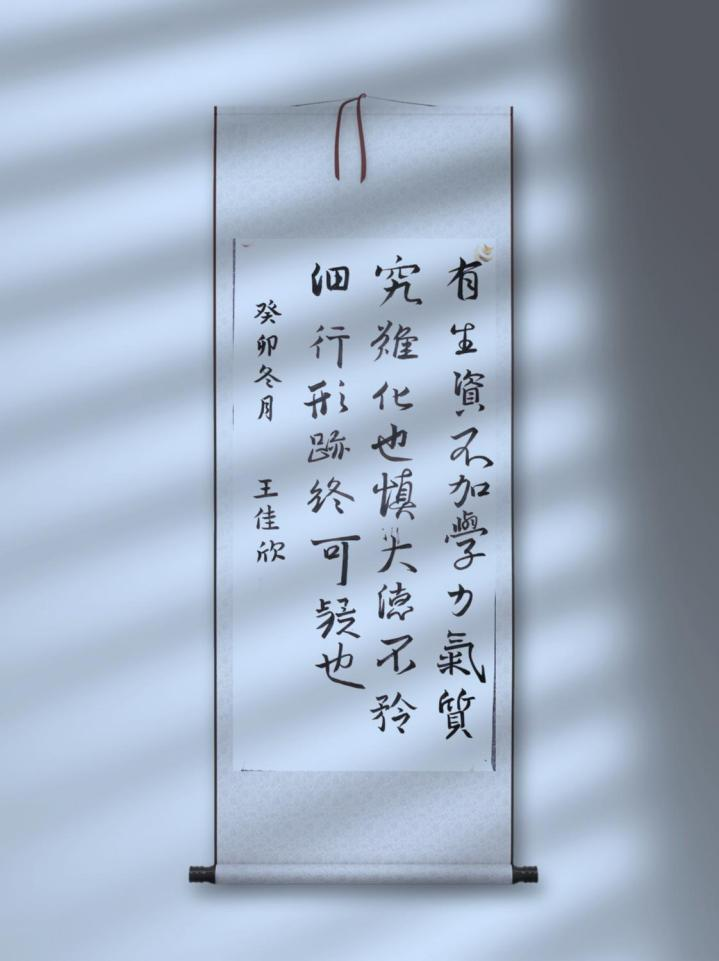 有生資不加學力氣質
究難化也慎大德不矜
細行形跡終可疑也
癸卯冬月 王佳欣